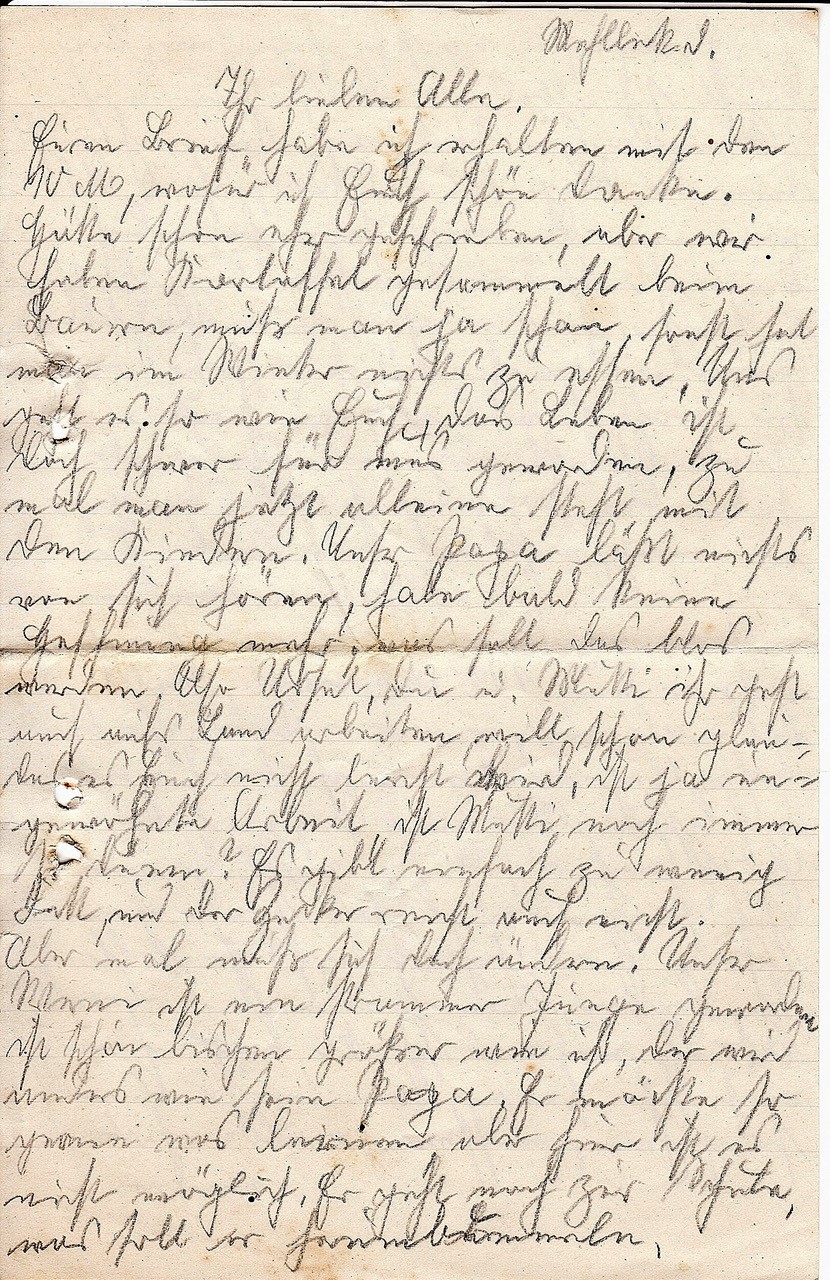 Ihr lieben Alle.
Euren Brief habe ich erhalten mit den
10 M, wofür ich Euch schön danke.
Hätte schon eher geschrieben, aber wir
haben Kartoffel gesammelt beim
Bauern, muß man ja schon, sonst hat
man im Winter nichts zu essen. Uns
geht es so wie Euch, das Leben ist
doch schwer für uns geworden, zu
mal man jetzt alleine steht mit
den Kindern. Unser Papa läßt nichts
von sich hören, habe bald keine
Hoffnung mehr, was soll das blos
werden. Also Ursel, du u. Mutti ihr geht
auch aufs Land arbeiten, will schon glau-
das es Euch nicht leicht wird, ist ja un-
gewöhnte Arbeit, ist Mutti noch immer
so dünn? Es gibt einfach zu wenig
Fett, und der Zucker reicht auch nicht.
Aber mal muß sich doch ändern. Unser
Werni ist ein strammer Junge geworden
ist schon bischen größer wie ich, der wird
anders wie sein Papa. Er möchte so
gerne was lernen aber hier ist es
nicht möglich. Er geht noch zur Schule,
was soll er herumbummeln.